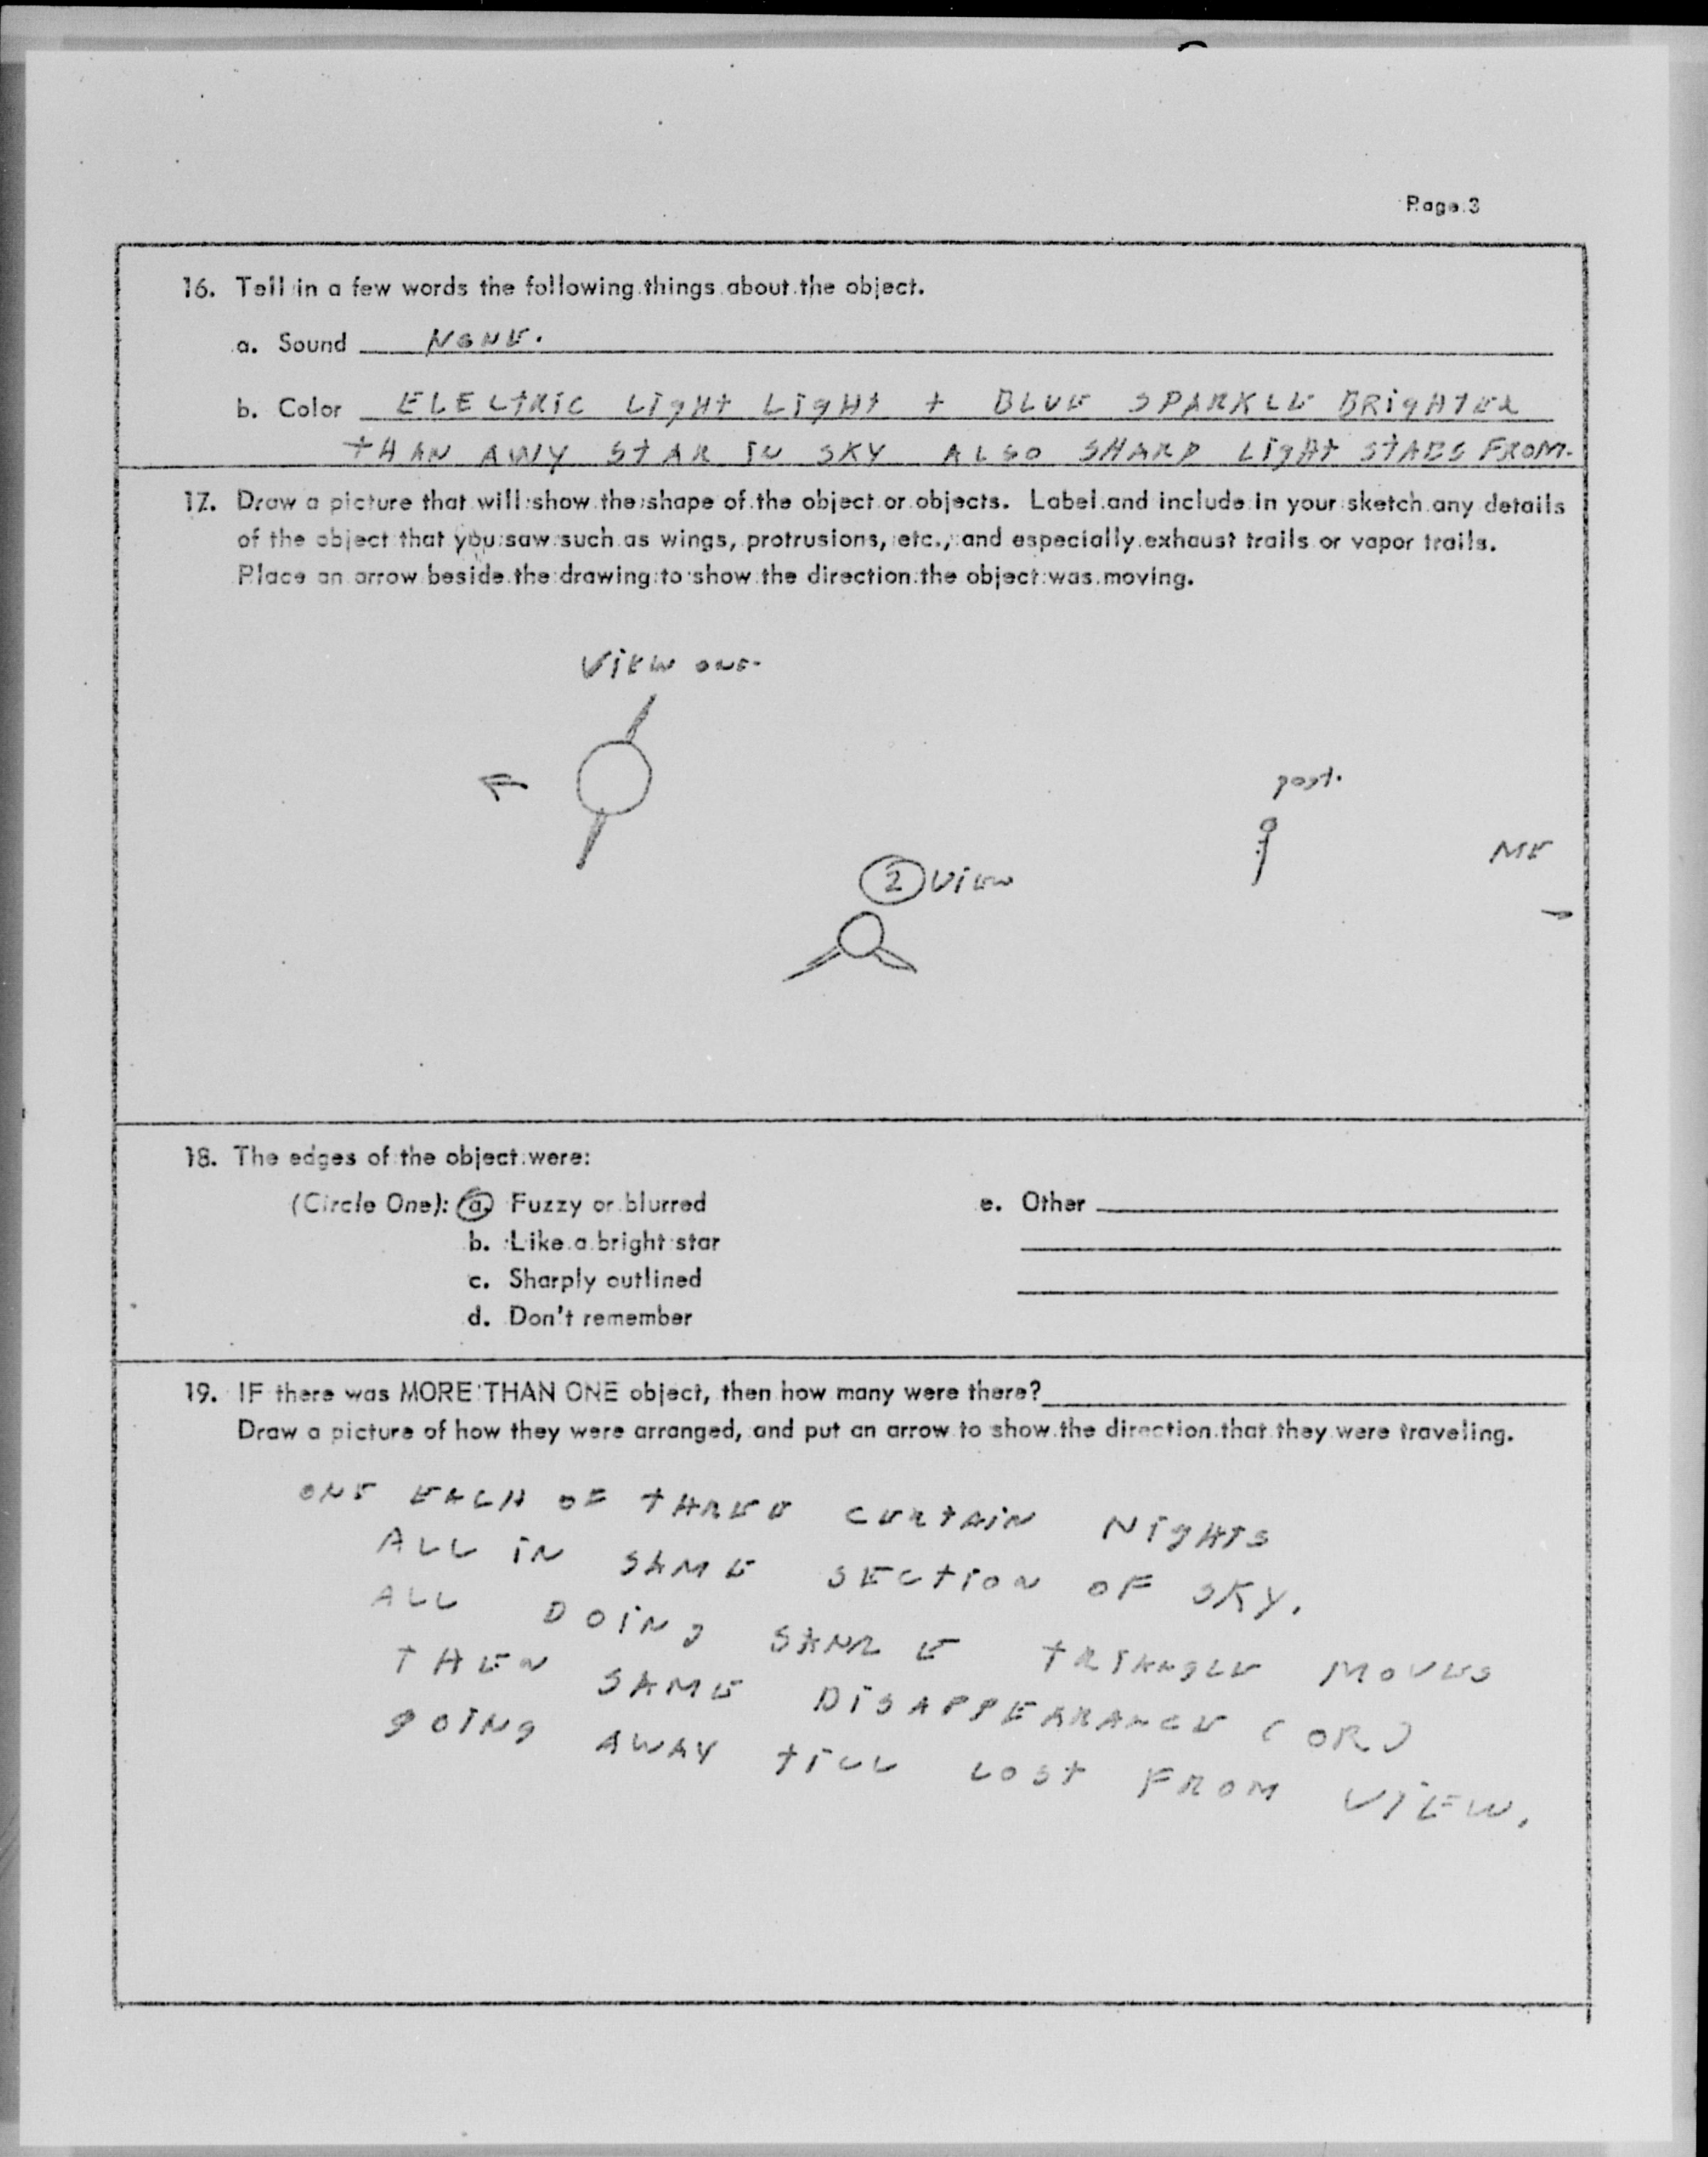 Page 3
16. Tell in a few words the following things about the object.
a. Sound NONE.
b. Color ELECTRIC LigHt LigHt + BLUE SPARKLE BRigHTER
tHAN ANY StAR IN SKY ALSO SHARP LigHt StABS FROM.
17. Draw a picture that will show the shape of the object or objects. Label and include in your sketch any details
of the object that you saw such as wings, protrusions, etc., and especially exhaust trails or vapor trails.
Place an arrow beside the drawing to show the direction the object was moving.
ViEW ONE.
post.
ME
2 ViEW
18. The edges of the object were:
(Circle One): a. Fuzzy or blurred
e. Other
b. Like a bright star
c. Sharply outlined
d. Don't remember
19. IF there was MORE THAN ONE object, then how many were there?
Draw a picture of how they were arranged, and put an arrow to show the direction that they were traveling.
ONE EACH OF tHREE CERtAiN NigHtS
ALL iN SAME SECtiON OF SKY.
ALL DOiNg SAME tRIANgLE MOVES
THEN SAME DiSAPPEARANCE (OR)
gOiNg AWAY tiLL LOSt FROM ViEW.